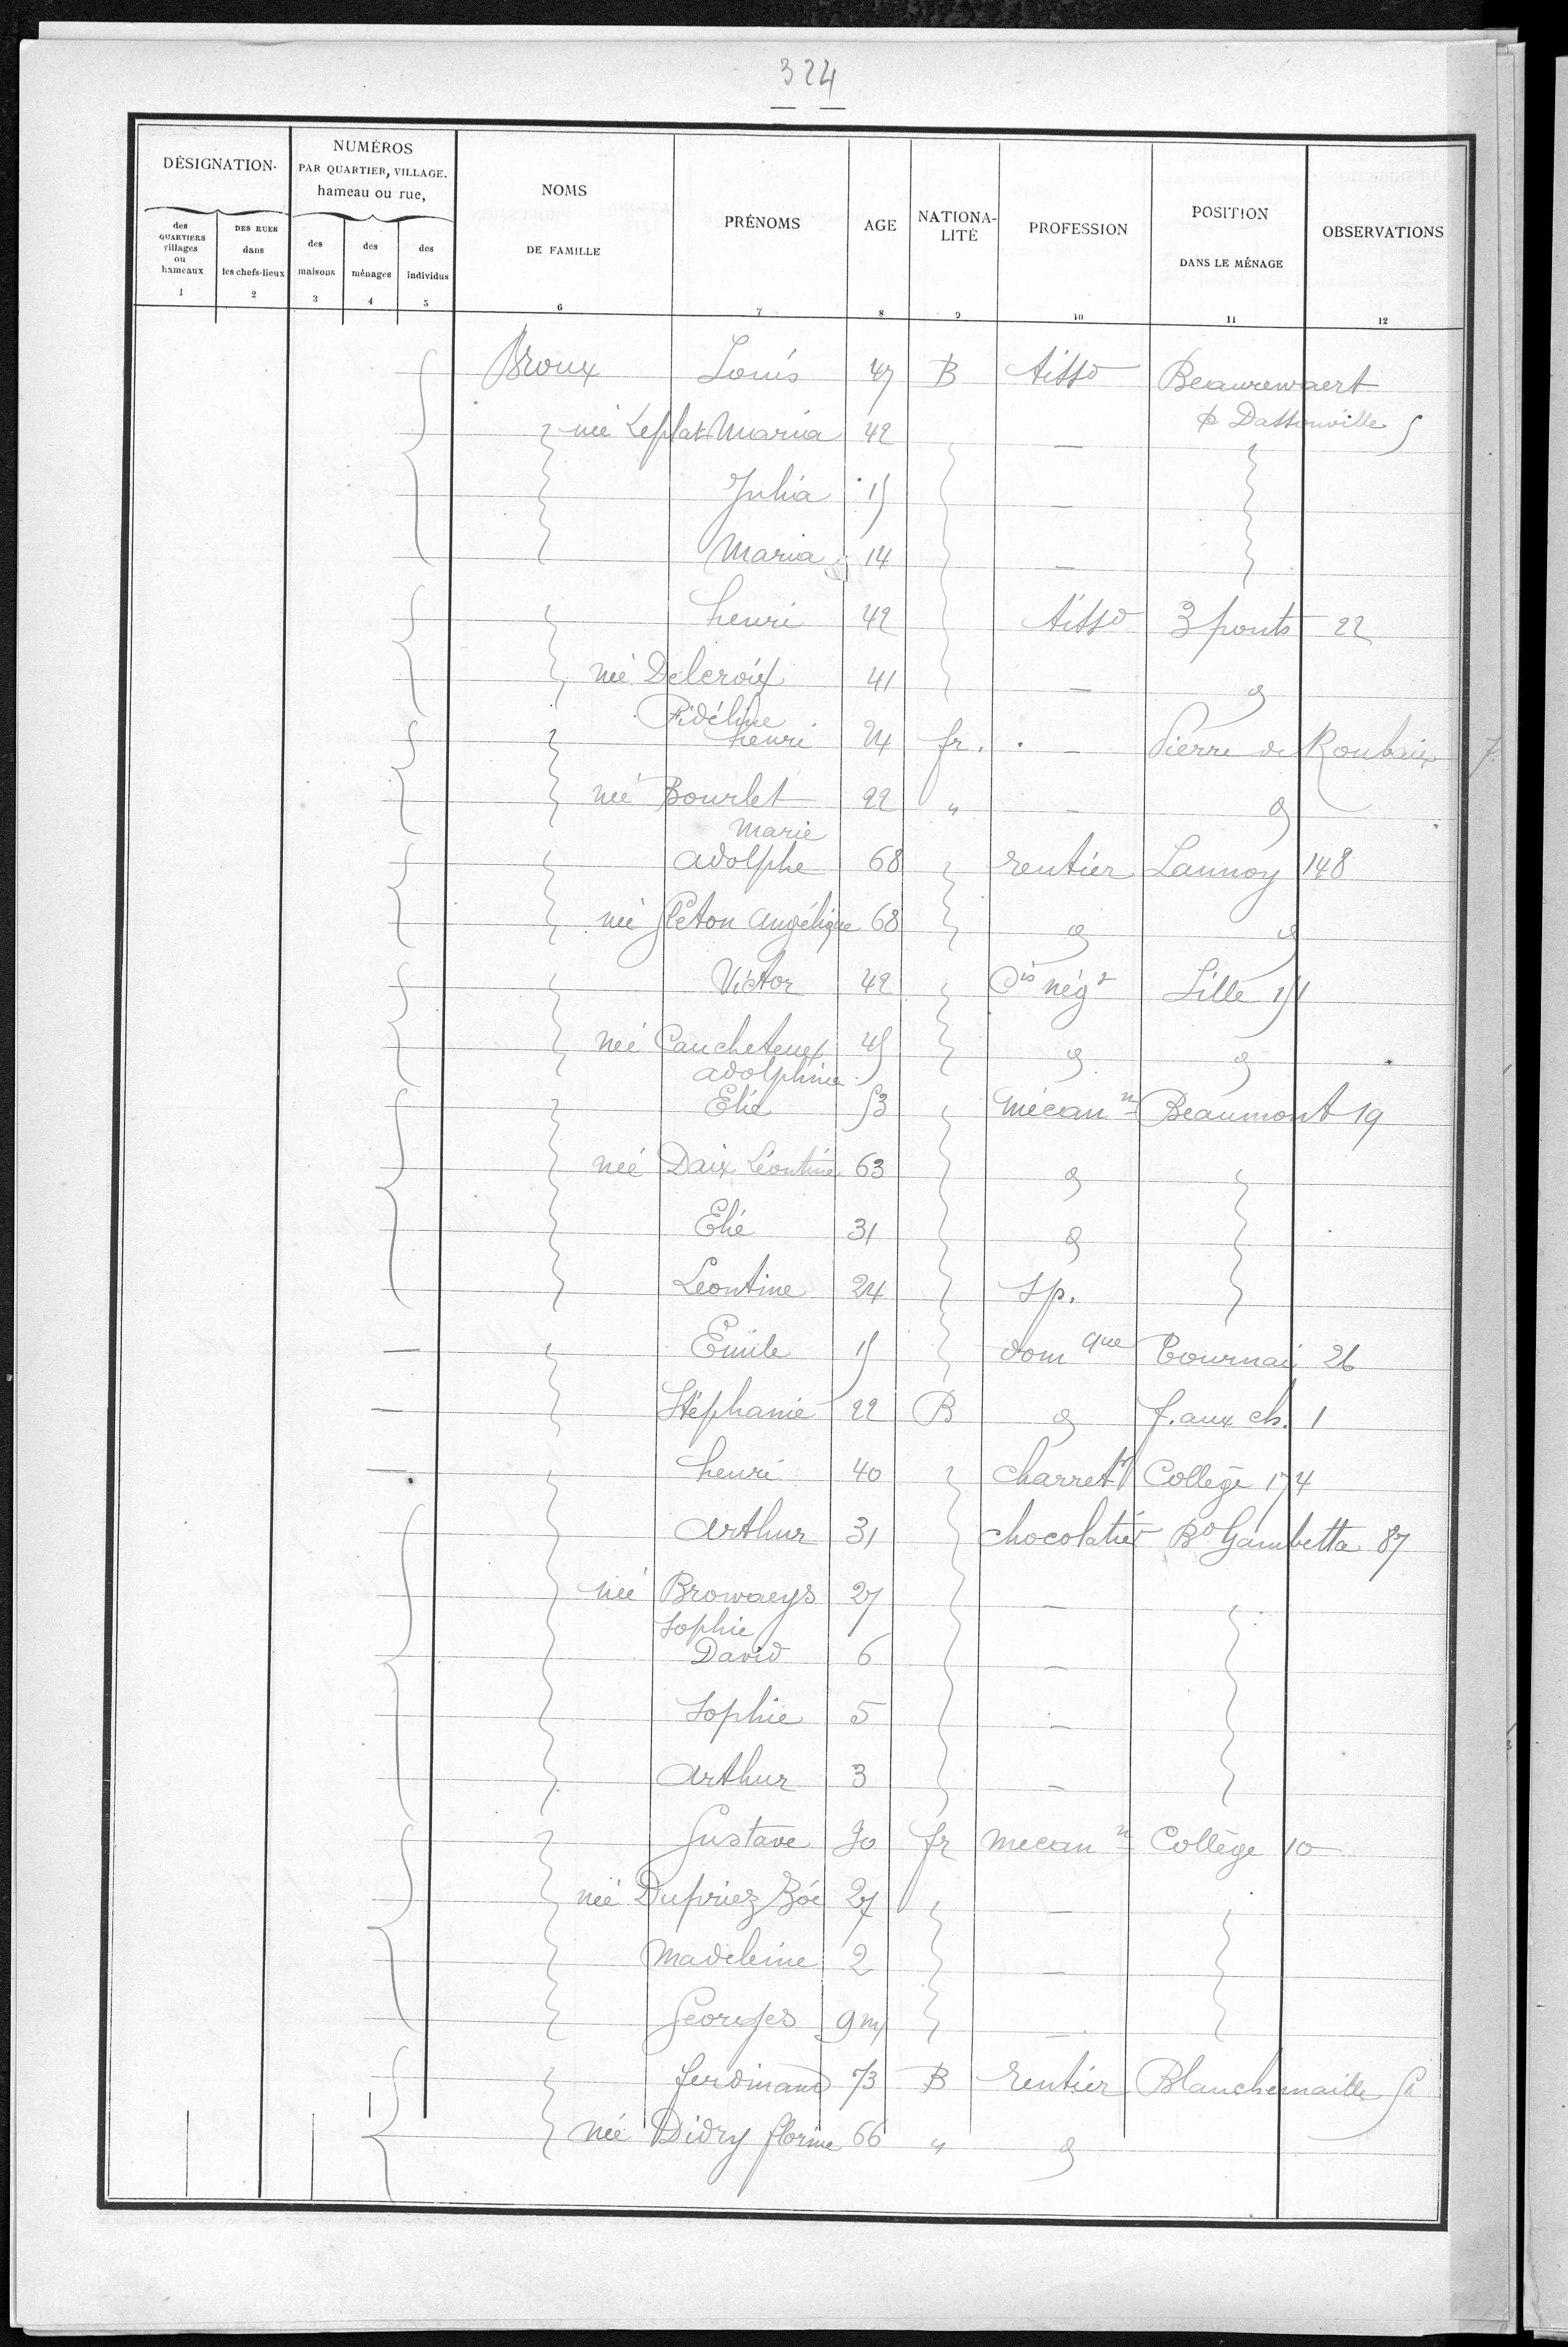 324
DÉSIGNATION.
NUMÉROS
PAR QUARTIER, VILLAGE.
hameau ou rue,
des
QUARTIERS
villages
ou
hameaux
1
DES RUES
dans
les chefs-lieux
2
des
maisons
3
des
ménages
4
des
individus
5
NOMS
DE FAMILLE
6
PRÉNOMS
7
AGE
8
NATIONA-
LITÉ
9
PROFESSION
10
POSITION
DANS LE MÉNAGE
11
OBSERVATIONS
12
Broux Louis 47 B tissd Beaurewaert
née Leplat Maria 42 — p Dassonville 5
Julia 15 —
Maria 14 —
henri 42 tissd 3 ponts 22
née Delcroix 41 — d
Fidéline
henri 24 fr. — Pierre de Roubaix 7
née Bourlet 22 " — d
Marie
adolphe 68 rentier Lannoy 148
née Gleton Angélique 68 d d
Victor 42 Cis négt Lille 151
née Caucheteux 45 d d
adolphine
Elie 53 mécann Beaumont 19
née Daix Léontine 63 d
Elie 31 d
Leontine 24 sp.
Emile 15 domque Tournai 26
Stéphanie 22 B d f. aux ch. 1
henri 40 charretr Collège 174
arthur 31 chocolatier Bd Gambetta 87
née Browaeys 27 —
Sophie
David 6 —
Sophie 5 —
arthur 3 —
Gustave 30 fr mecann Collège 10
née Dupriez Zóe 27 —
Madeleine 2 —
Georges 9 m —
ferdinand 73 B rentier Blanchemaille
née Didry florine 66 " d